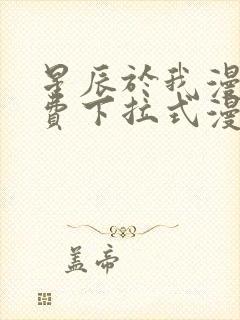 星辰於我漫
費下拉式漫
盖帝